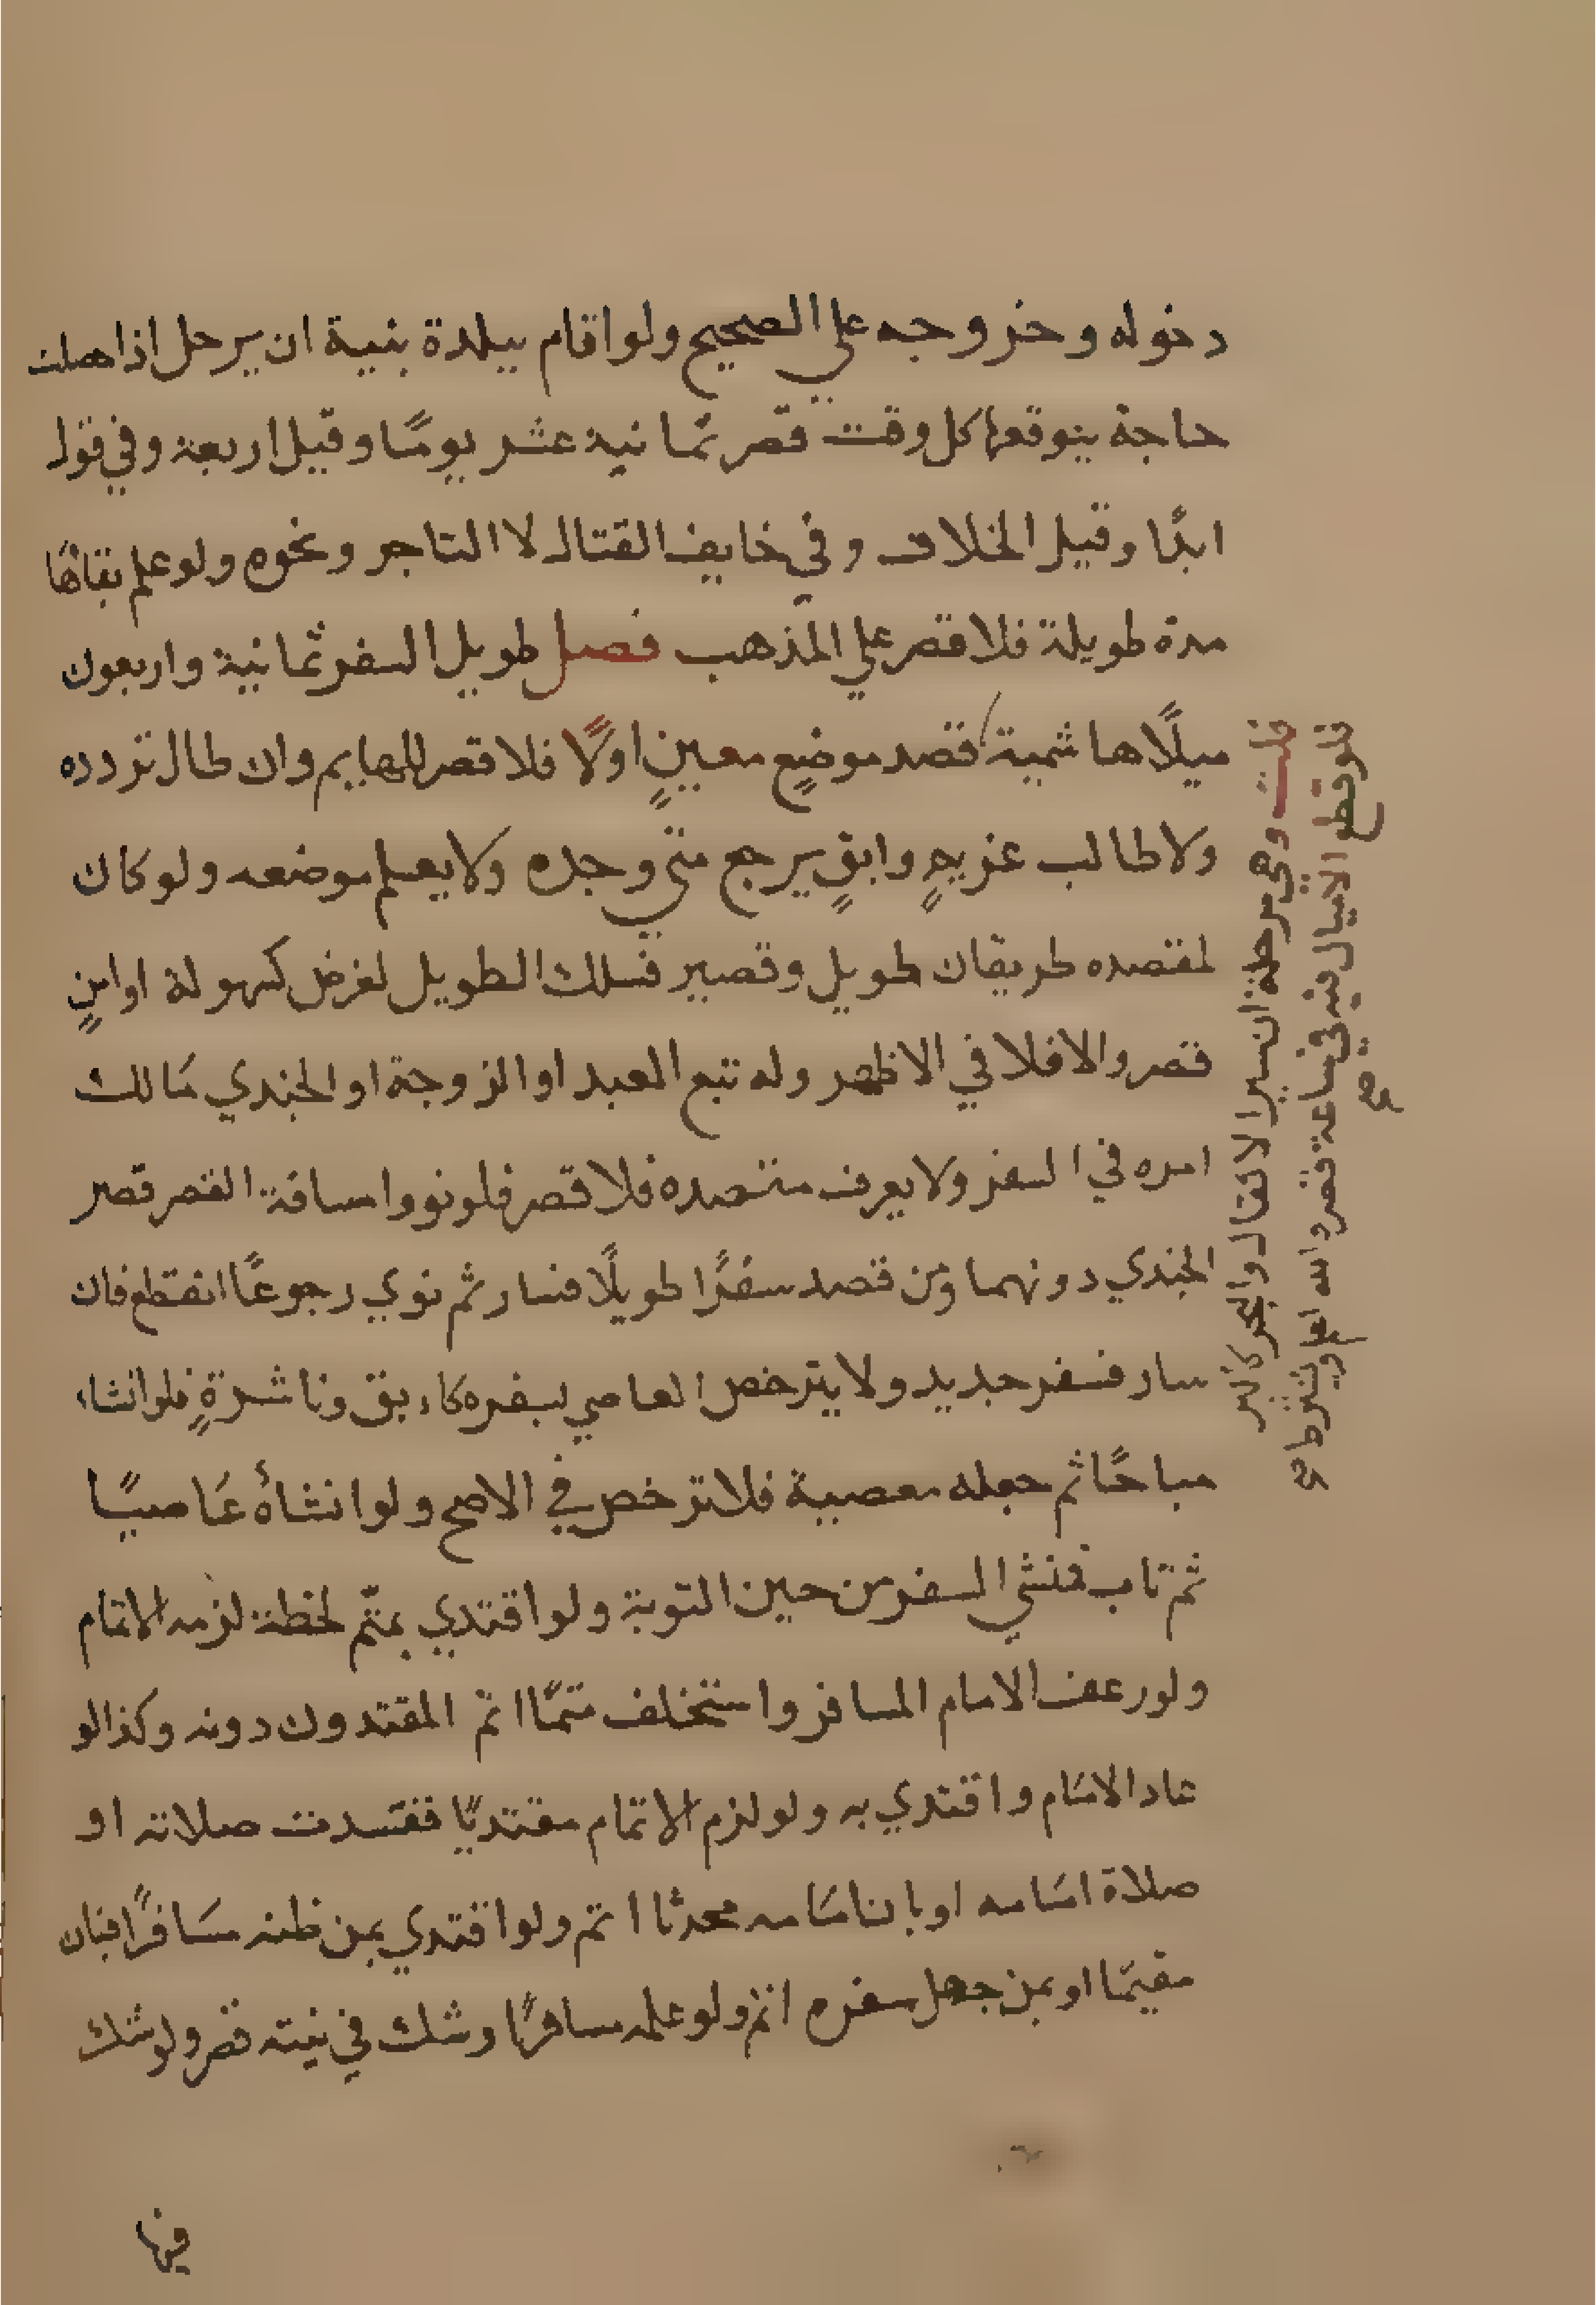 دخوله وخروجه علي الصحيح ولو اقام ببلدة بنية ان يرحل اذا حصلت
حاجة يتوقعها كل وقت قصر ثمانية عشر يومًا وقيل اربعة وفي قول
ابدًا وقيل الخلاف وفي خايف القتال لا التاجر ونحوه ولو علم بقاها
مدة طويلة فلا قصر علي المذهب فصل طويل السفر ثمانية واربعون
ميلًا هاشمية قصد موضع معينٍ اولًا فلا قصر للهايم وان طال تردده
ولا طالب غريمٍ وابقٍ يرجع متي وجده ولا يعلم موضعه ولو كان
لمقصده طريقان طويل وقصير فسلك الطويل لغرض كسهولة او امنٍ
قصر والا فلا في الاظهر ولو تبع العبد او الزوجة او الجندي مالك
امره في السفر ولا يعرف مقصده فلا قصر فلو نووا مسافة القصر قصر
الجندي دونهما ومن قصد سفرًا طويلًا فسار ثم نوي رجوعًا انقطع فان
سار فسفر جديد ولا يترخص العاصي بسفره كاءبق وناشزةٍ فلو انشاء
مباحًا ثم جعله معصية فلا ترخص في الاصح ولو انشأه عاصيًا
ثم تاب فمنشي السفر من حين التوبة ولو اقتدي بمتمّ لحظة لزمه الاتمام
ولو رعف الامام المسافر واستخلف متمًّا اتم المقتدون دونه وكذا لو
عاد الامام واقتدي به ولو لزم الاتمام مقتديًا ففسدت صلاته او
صلاة امامه او بان امامه محدثا اتم ولو اقتدي بمن ظنه مسافرًا فبان
مقيمًا او بمن جهل سفره اتم ولو علمه مسافرًا وشك في نيته قصر ولو شك
فيها
قلت وهي مرحلتان بسير الاثقال والبحر كالبر
فلو قطع الاميال فيه في ساعة قصر والله اعلم ويشترط
صح